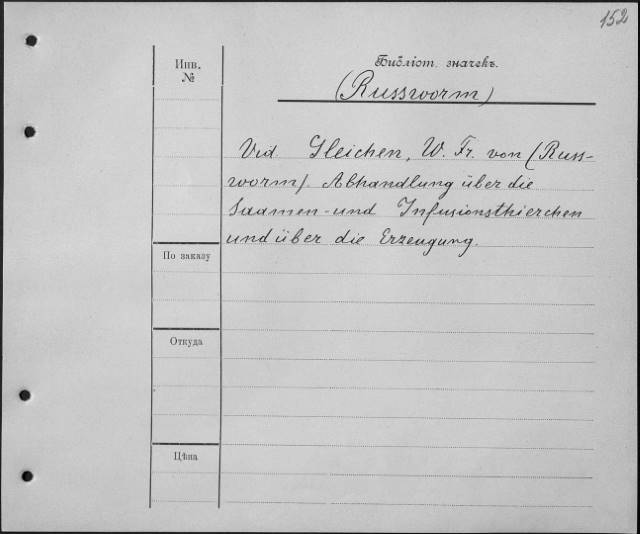 152
Инв.
№
Библіот. значекъ.
(Russworm)
Vid. Gleichen, W. Fr. von (Russ-
worm). Abhandlung über die
Saamen- und Infusionsthierchen
und über die Erzeugung.
По заказу
Откуда
Цѣна